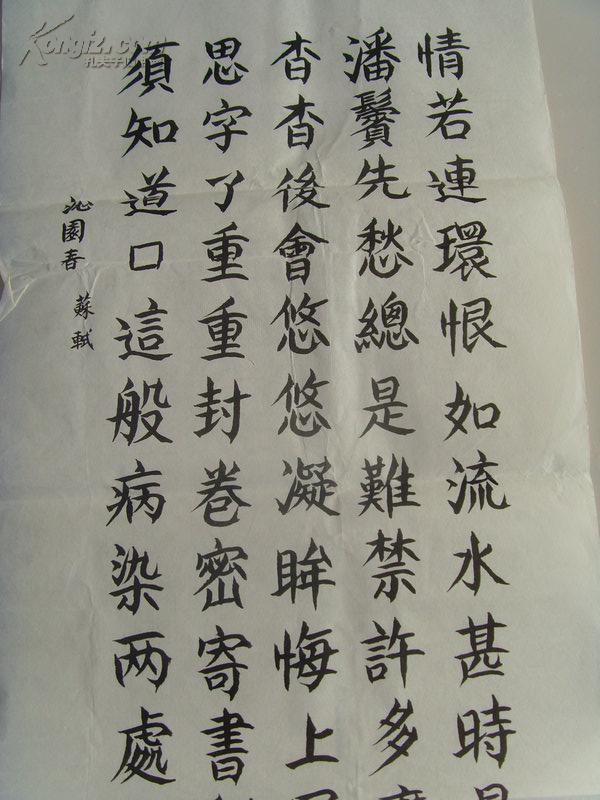 情若連環恨如流水甚時
潘鬢先愁總是難禁許多
杳杳後會悠悠凝眸悔上
思字了重重封卷密寄書
須知道口這般病染两處
沁園春 蘇軾
Kongfz.com
孔夫子旧书网